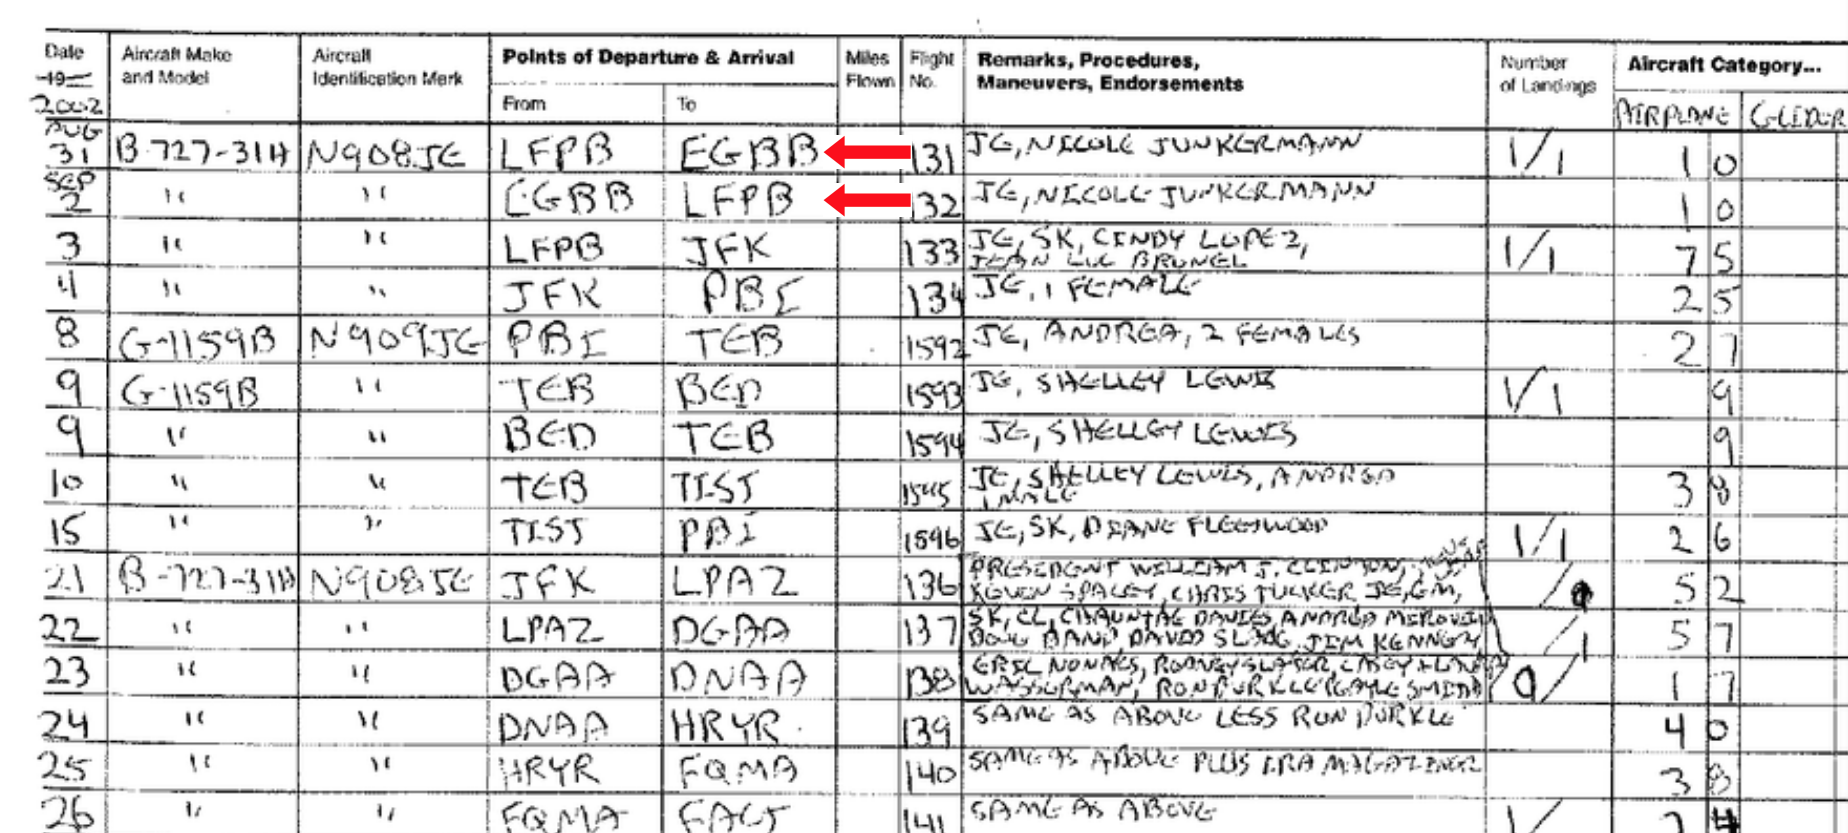 Date Aircraft Make Aircraft Points of Departure & Arrival Miles Flight Remarks, Procedures, Number Aircraft Category...
19 and Model Identification Mark Flown No. Maneuvers, Endorsements of Landings
2002 From To AIRPLANE GLIDER
AUG
31 B-727-31H N908JE LFPB EGBB 131 JE, NICOLE JUNKERMANN 1/1 1 0
SEP
2 " " EGBB LFPB 132 JE, NICOLE JUNKERMANN 1 0
3 " " LFPB JFK 133 JE, SK, CINDY LOPEZ, 1/1 7 5
JEAN LUC BRUNEL
4 " " JFK PBI 134 JE, 1 FEMALE 2 5
8 G-1159B N909JE PBI TEB 1592 JE, ANDREA, 2 FEMALES 2 7
9 G-1159B " TEB BED 1593 JE, SHELLEY LEWIS 1/1 9
9 " " BED TEB 1594 JE, SHELLEY LEWIS 9
10 " " TEB TIST 1595 JE, SHELLEY LEWIS, ANDREA 3 8
1 MALE
15 " " TIST PBI 1596 JE, SK, DIANE FLEETWOOD 1/1 2 6
21 B-727-31H N908JE JFK LPAZ 136 PRESIDENT WILLIAM J. CLINTON, 5 2
KEVIN SPACEY, CHRIS TUCKER JE, GM,
22 " " LPAZ DGAA 137 SK, CL, CHAUNTAE DAVIES, ANDREA /1 5 7
DOUG BAND DAVID SLANG, JIM KENNEZ
23 " " DGAA DNAA 138 ERIC NONACS, RODNEY SLATER, CASEY 1 7
WASSERMAN, RON BURKLE GAYLE SMITH
24 " " DNAA HRYR 139 SAME AS ABOVE LESS RON BURKLE 4 0
25 " " HRYR FQMA 140 SAME AS ABOVE PLUS IRA MAGAZINER 3 8
26 " " FQMA FACT 141 SAME AS ABOVE